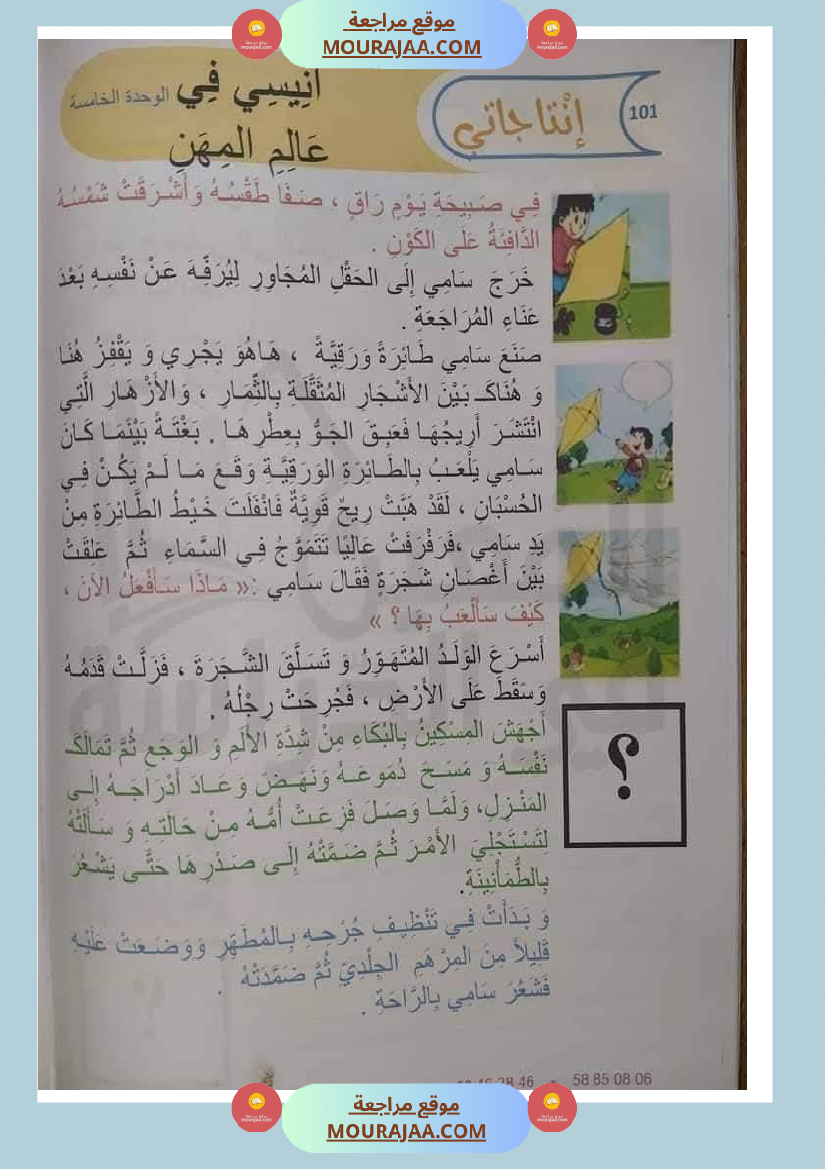 موقع مراجعة
MOURAJAA.COM
101
إنْتاجاتي
أَنِيسِي فِي
الوحدة الخامسة
عَالِمِ المِهَنِ
فِي صَبِيحَةِ يَوْمٍ رَاقٍ ، صَفَا طَقْسُهُ وَأَشْرَقَتْ شَمْسُهُ
الدَّافِئَةُ عَلَى الكَوْنِ .
خَرَجَ سَامِي إِلَى الحَقْلِ المُجَاوِرِ لِيُرَفِّهَ عَنْ نَفْسِهِ بَعْدَ
عَنَاءِ المُرَاجَعَةِ .
صَنَعَ سَامِي طَائِرَةً وَرَقِيَّةً ، هَاهُوَ يَجْرِي وَ يَقْفِزُ هُنَا
وَ هُنَاكَ بَيْنَ الأَشْجَارِ المُثَقَّلَةِ بِالثِّمَارِ ، وَالأَزْهَارِ الَّتِي
انْتَشَرَ أَرِيجُهَا فَعَبِقَ الجَوُّ بِعِطْرِهَا . بَغْتَةً بَيْنَمَا كَانَ
سَامِي يَلْعَبُ بِالطَائِرَةِ الوَرَقِيَّةِ وَقَعَ مَا لَمْ يَكُنْ فِي
الحُسْبَانِ ، لَقَدْ هَبَّتْ رِيحٌ قَوِيَّةٌ فَانْفَلَتَ خَيْطُ الطَّائِرَةِ مِنْ
يَدِ سَامِي ،فَرَفْرَفَتْ عَالِيًا تَتَمَوَّجُ فِي السَّمَاءِ ثُمَّ عَلِقَتْ
بَيْنَ أَغْصَانِ شَجَرَةٍ فَقَالَ سَامِي :« مَاذَا سَأَفْعَلُ الآنَ ،
كَيْفَ سَأَلْعَبُ بِهَا ؟ »
أَسْرَعَ الوَلَدُ المُتَهَوِّرُ وَ تَسَلَّقَ الشَّجَرَةَ ، فَزَلَّتْ قَدَمُهُ
وَسَقَطَ عَلَى الأَرْضِ ، فَجُرِحَتْ رِجْلُهُ .
أَجْهَشَ المِسْكِينُ بِالبُكَاءِ مِنْ شِدَّةِ الأَلَمِ وَ الوَجَعِ ثُمَّ تَمَالَكَ
نَفْسَهُ وَ مَسَحَ دُمُوعَهُ وَنَهَضَ وَعَادَ أَدْرَاجَهُ إِلَى
المَنْزِلِ، وَلَمَّا وَصَلَ فَزِعَتْ أُمُّهُ مِنْ حَالَتِهِ وَ سَأَلَتْهُ
لِتَسْتَجْلِيَ الأَمْرَ ثُمَّ ضَمَّتْهُ إِلَى صَدْرِهَا حَتَّى يَشْعُرَ
بِالطُّمَأْنِينَةِ.
وَ بَدَأَتْ فِي تَنْظِيفِ جُرْحِهِ بِالمُطَهِّرِ وَوَضَعَتْ عَلَيْهِ
قَلِيلاً مِنَ المِرْهَمِ الجِلْدِيِّ ثُمَّ ضَمَّدَتْهُ .
فَشَعُرَ سَامِي بِالرَّاحَةِ .
؟
58 85 08 06
موقع مراجعة
MOURAJAA.COM